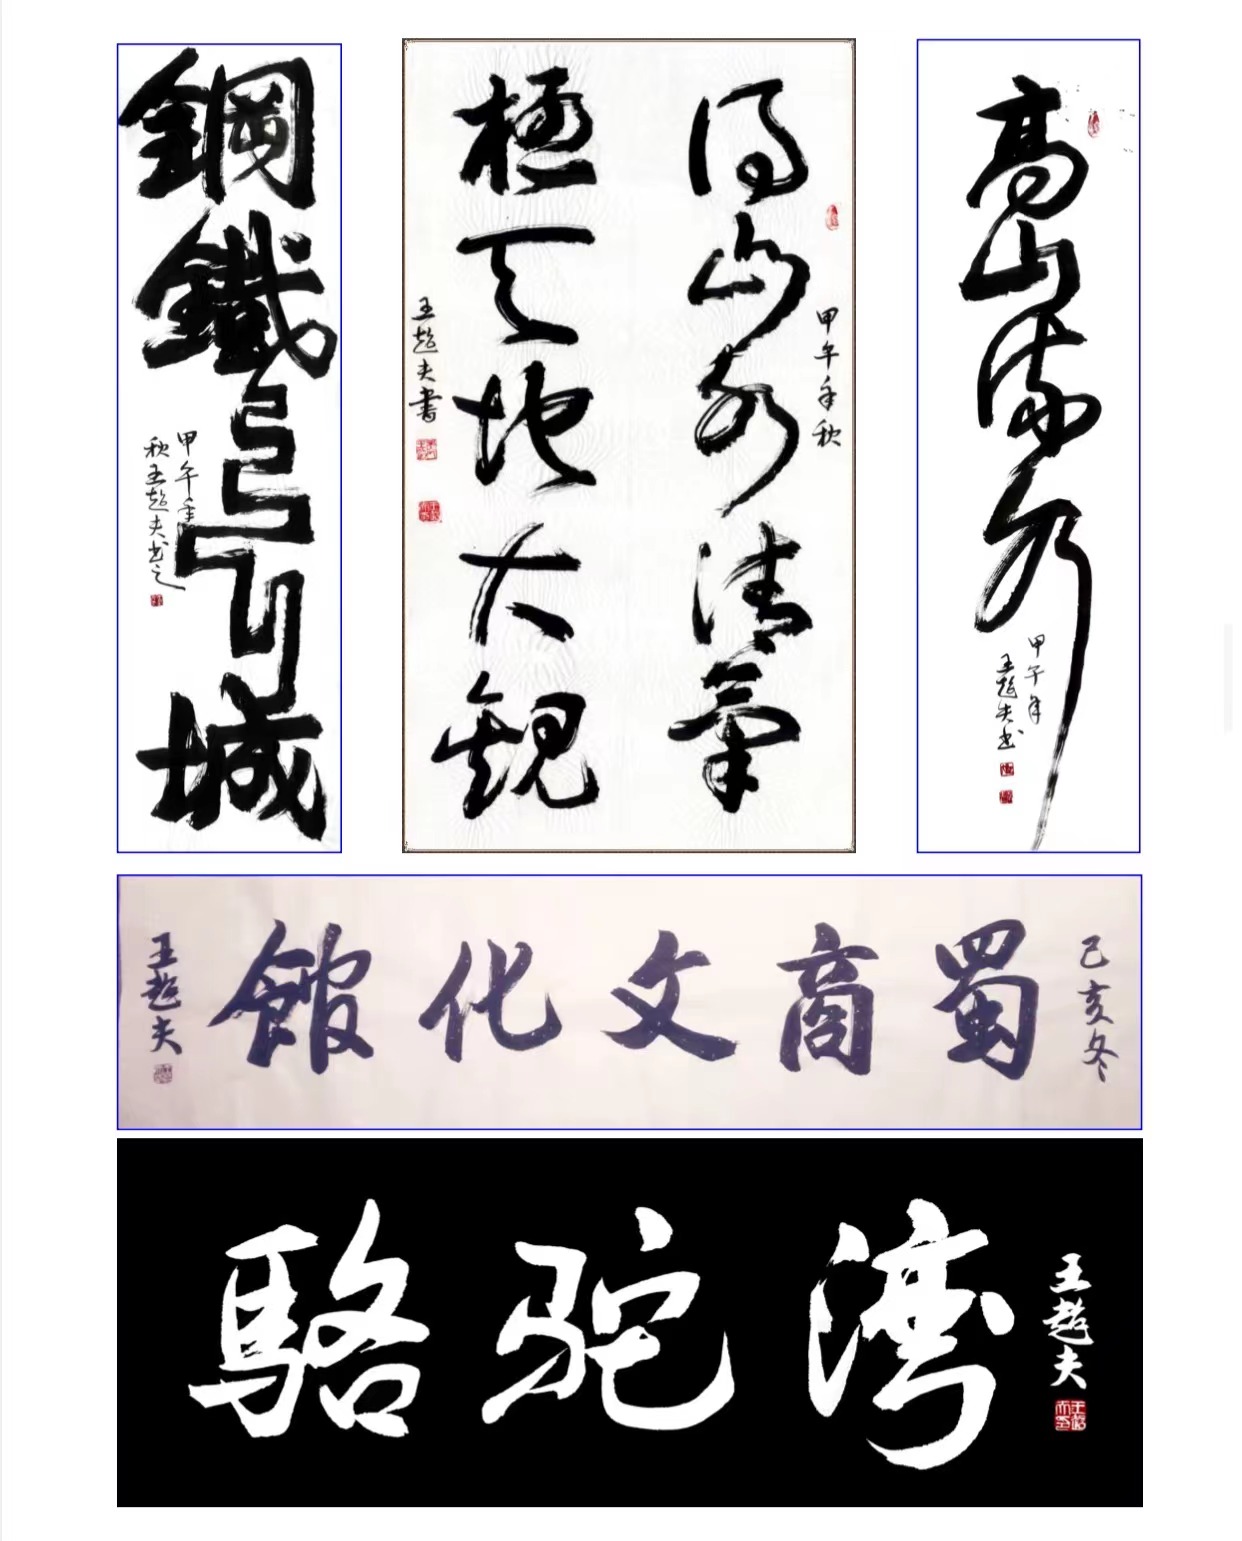 鋼鐵長城
甲午年
秋王超夫书之
甲午年秋
得山水清氣
極天地大觀
王超夫書
高山流水
甲午年
王超夫书
己亥冬
蜀商文化館
王超夫
駱驼湾
王超夫